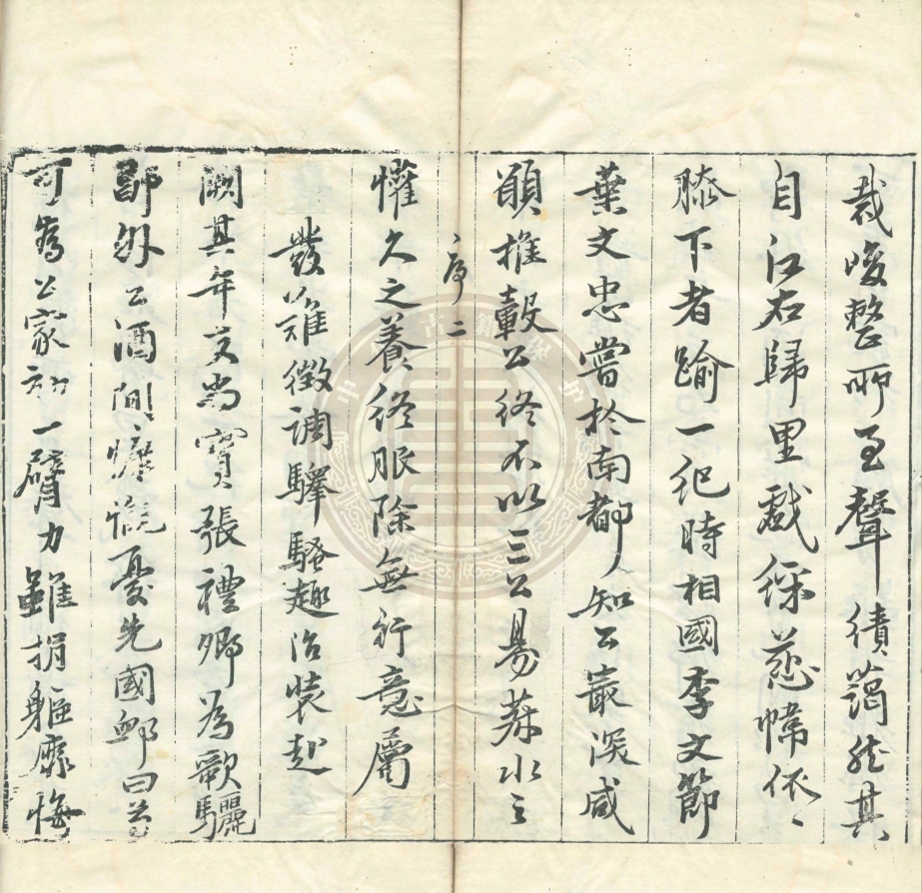 裁峻整所至聲績藹然其
自江右歸里戲綵慈幃依〻
膝下者踰一紀時相國李文節
葉文忠嘗於南都知公最深咸
願推轂公終不以三公易菽水之
序 二
懽久之養終服除無行意屬
發難徵調驛騷趣治裝起
闕其年友尚寶張禮卿為歌驪
郊外公酒間慷慨憂先國卹曰苟
可為公家効一臂力雖捐軀靡悔